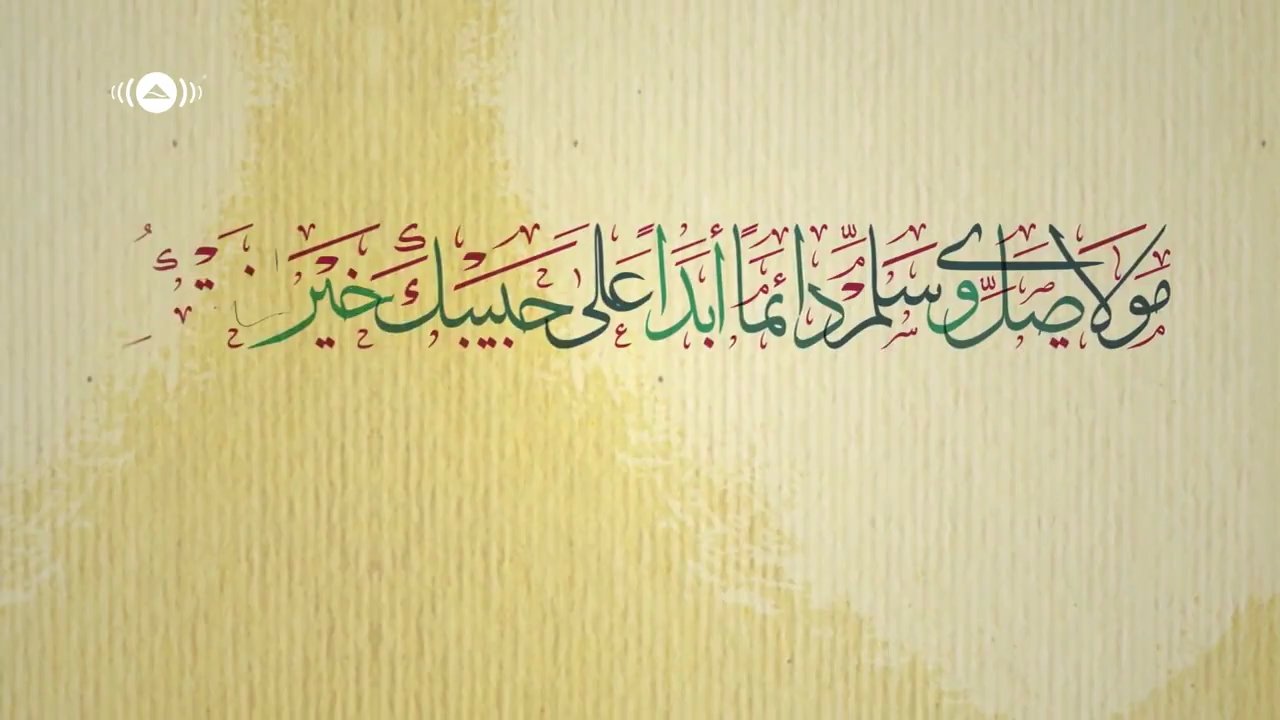 مَوْلَايَ صَلِّ وَسَلِّمْ دَائِمًا أَبَدًا عَلَى حَبِيبِكَ خَيْرِ